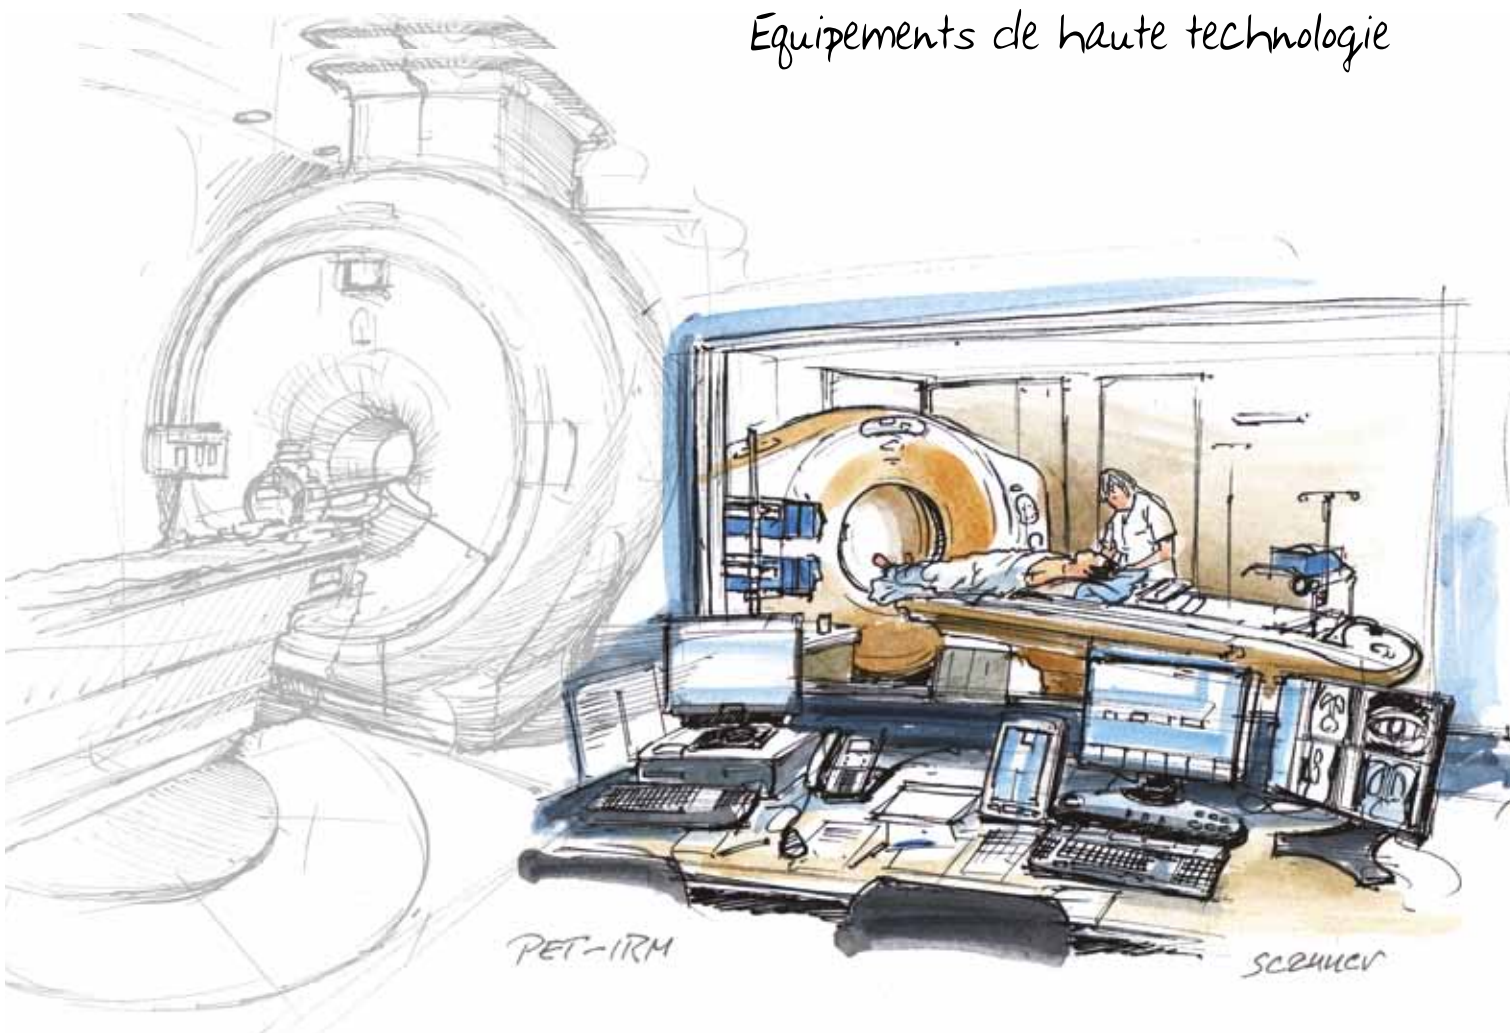 Equipements de haute technologie
PET-IRM
scanner